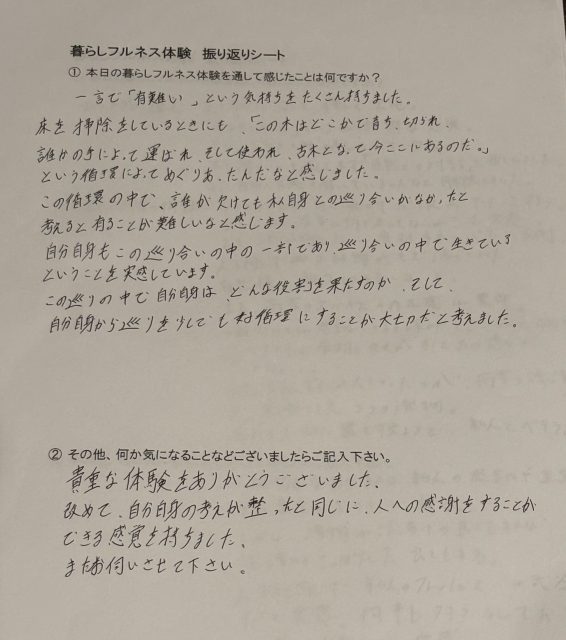 暮らしフルネス体験 振り返りシート
① 本日の暮らしフルネス体験を通して感じたことは何ですか？
一言で「有難い」という気持ちをたくさん持ちました。
床を掃除をしているときにも、「この木はどこかで育ち、切られ、
誰かの手によって運ばれ、そして使われ、古木となって今ここにあるのだ。」
という循環によってめぐりあったんだなと感じました。
この循環の中で、誰が欠けても私自身との巡り合いがなかったと
考えると有ることが難しいなと感じます。
自分自身もこの巡り合いの中の一部であり、巡り合いの中で生きている
ということを実感しています。
この巡りの中で自分自身は、どんな役割を果たすのか、そして、
自分自身から巡りを少しでも好循環にすることが大切だと考えました。
② その他、何か気になることなどございましたらご記入下さい。
貴重な体験をありがとうございました。
改めて、自分自身の考えが整ったと同じに、人への感謝をすることが
できる感覚を持ちました。
またお伺いさせて下さい。